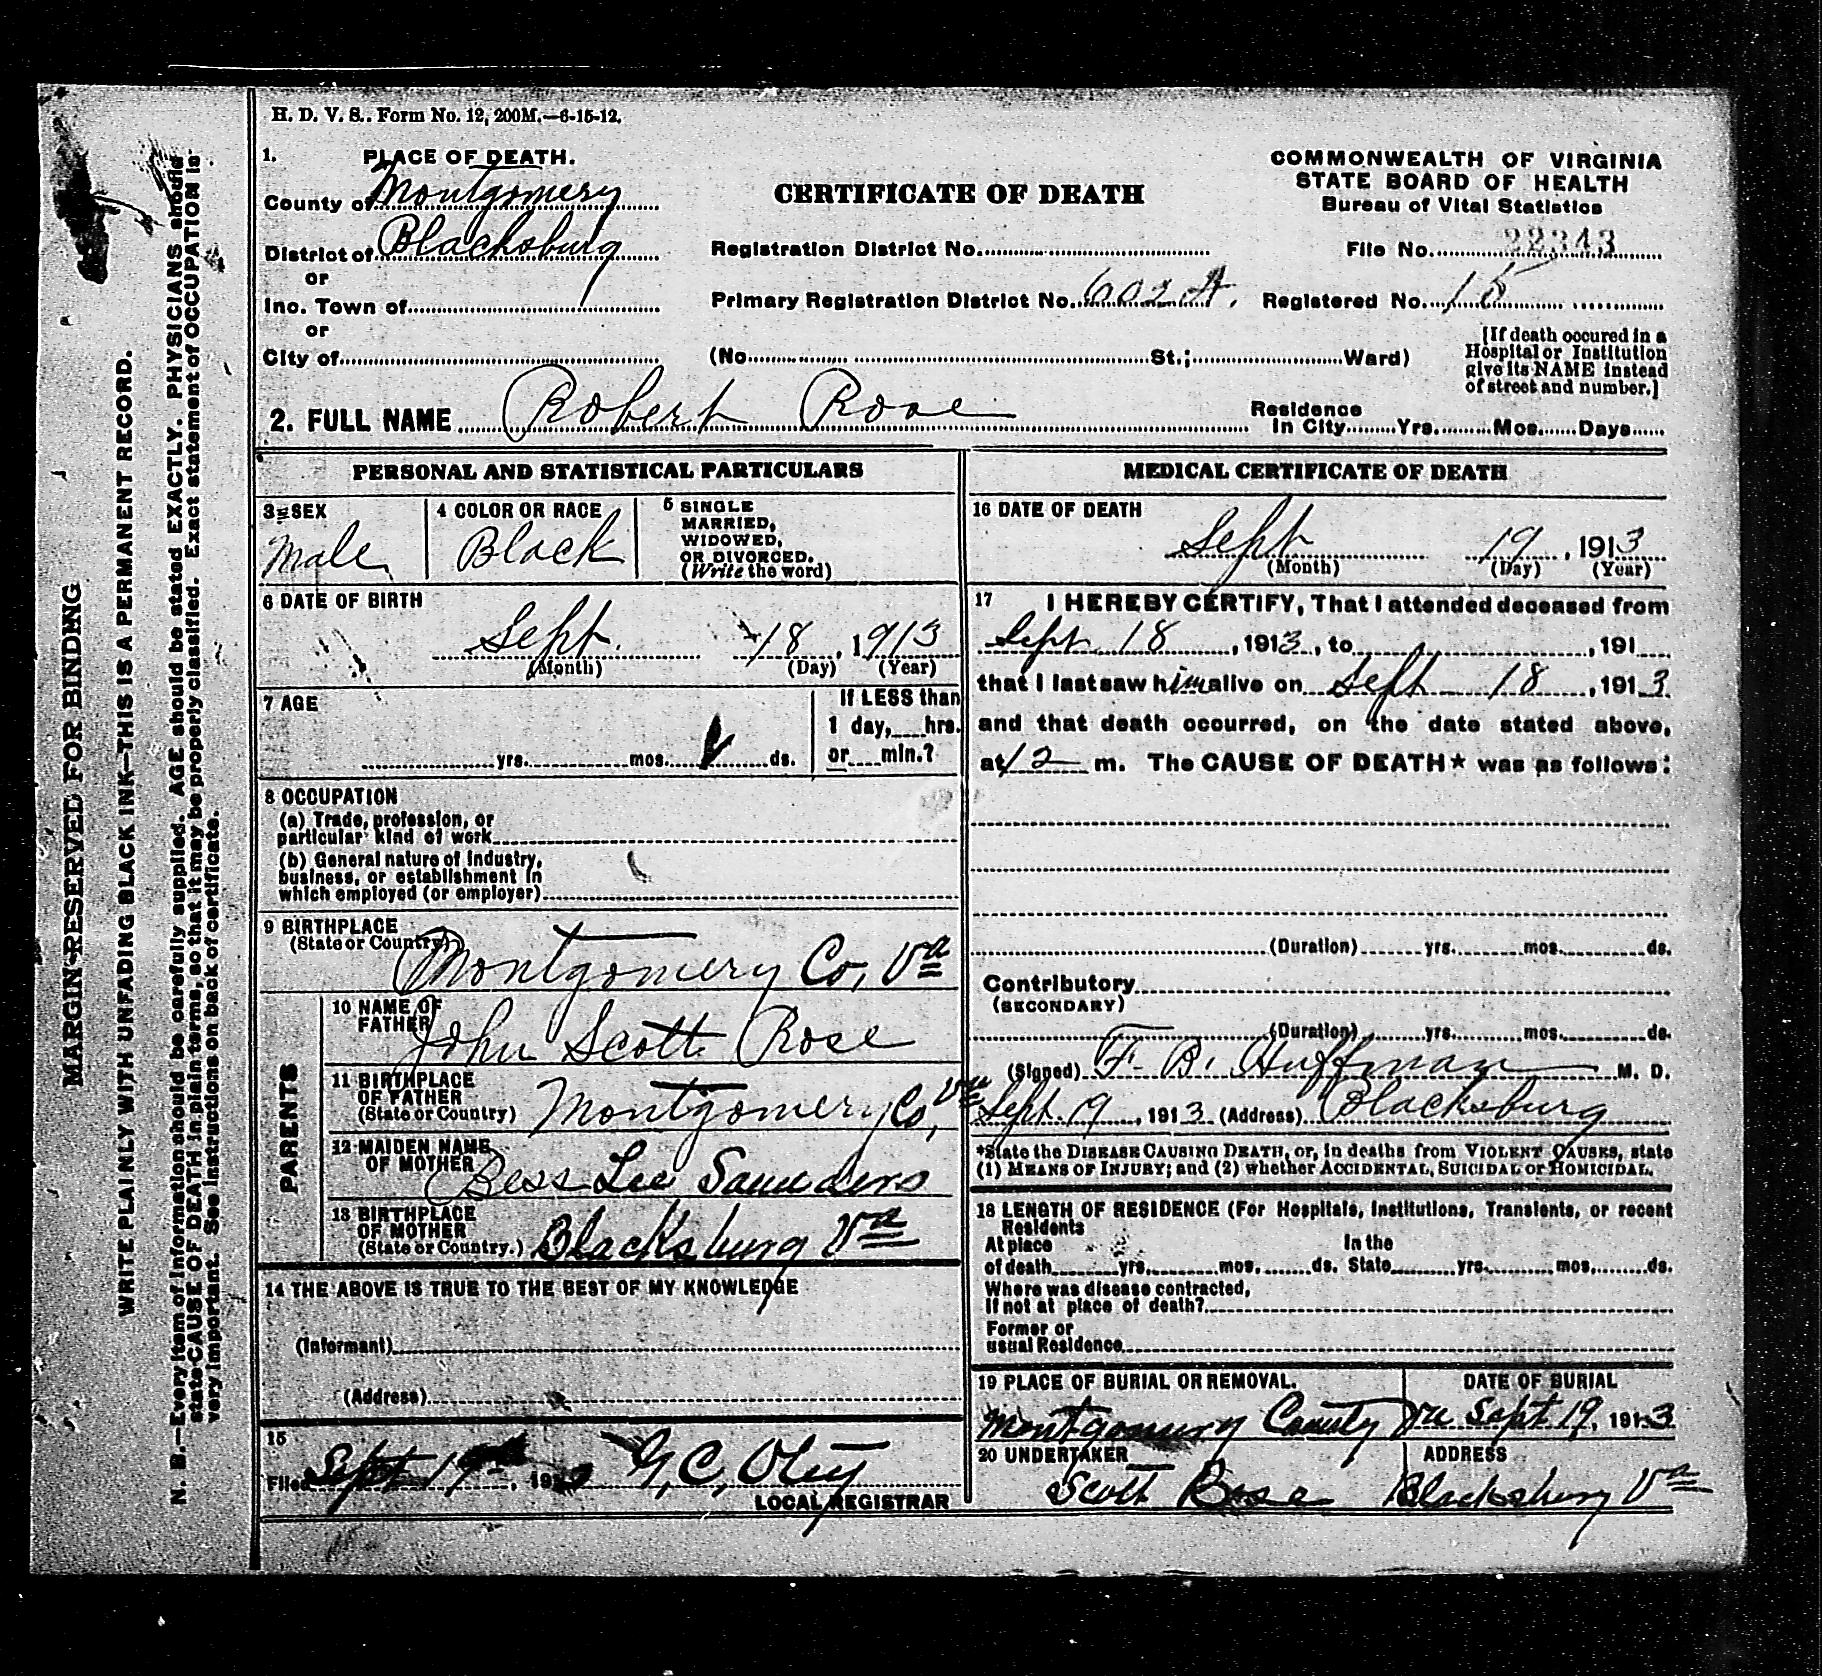 H. D. V. S.. Form No. 12, 200M.—6-15-12.
1. PLACE OF DEATH.
County of Montgomery
District of Blacksburg
or
Inc. Town of
or
City of
CERTIFICATE OF DEATH
Registration District No.
Primary Registration District No.
(No. St.; Ward)
COMMONWEALTH OF VIRGINIA
STATE BOARD OF HEALTH
Bureau of Vital Statistics
File No. 22343
Registered No. 15
[If death occured in a
Hospital or Institution
give its NAME instead
of street and number.]
2. FULL NAME Robert Rose
Residence
In City Yrs. Mos. Days
PERSONAL AND STATISTICAL PARTICULARS
3 SEX
Male
4 COLOR OR RACE
Black
5 SINGLE
MARRIED,
WIDOWED,
OR DIVORCED.
(Write the word)
6 DATE OF BIRTH
Sept. 18, 1913
(Month) (Day) (Year)
7 AGE
yrs. mos. 1 ds.
If LESS than
1 day, hrs.
or min.?
8 OCCUPATION
(a) Trade, profession, or
particular kind of work
(b) General nature of Industry,
business, or establishment in
which employed (or employer)
9 BIRTHPLACE
(State or Country)
Montgomery Co, Va
PARENTS
10 NAME OF
FATHER
John Scott Rose
11 BIRTHPLACE
OF FATHER
(State or Country) Montgomery Co, Va
12 MAIDEN NAME
OF MOTHER Bess Lee Saunders
13 BIRTHPLACE
OF MOTHER
(State or Country.) Blacksburg Va
14 THE ABOVE IS TRUE TO THE BEST OF MY KNOWLEDGE
(Informant)
(Address)
15
Filed Sept 19th, 191 G, C, Otey
LOCAL REGISTRAR
MEDICAL CERTIFICATE OF DEATH
16 DATE OF DEATH
Sept 19, 1913
(Month) (Day) (Year)
17 I HEREBY CERTIFY, That I attended deceased from
Sept 18, 1913, to , 191
that I last saw him alive on Sept 18, 1913
and that death occurred, on the date stated above,
at 12 m. The CAUSE OF DEATH* was as follows:
(Duration) yrs. mos. ds.
Contributory
(SECONDARY)
(Duration) yrs. mos. ds.
(Signed) F. B. Huffman M. D.
Sept. 19, 1913 (Address) Blacksburg
*State the DISEASE CAUSING DEATH, or, in deaths from VIOLENT CAUSES, state
(1) MEANS OF INJURY; and (2) whether ACCIDENTAL, SUICIDAL or HOMICIDAL.
18 LENGTH OF RESIDENCE (For Hospitals, Institutions, Transients, or recent
Residents
At place In the
of death yrs. mos. ds. State yrs. mos. ds.
Where was disease contracted,
If not at place of death?
Former or
usual Residence
19 PLACE OF BURIAL OR REMOVAL. DATE OF BURIAL
Montgomery County Va Sept. 19, 1913
20 UNDERTAKER ADDRESS
Scott Rose Blacksburg Va
MARGIN RESERVED FOR BINDING
WRITE PLAINLY WITH UNFADING BLACK INK—THIS IS A PERMANENT RECORD.
N. B.—Every item of information should be carefully supplied. AGE should be stated EXACTLY. PHYSICIANS should
state CAUSE OF DEATH in plain terms, so that it may be properly classified. Exact statement of OCCUPATION is
very important. See instructions on back of certificate.